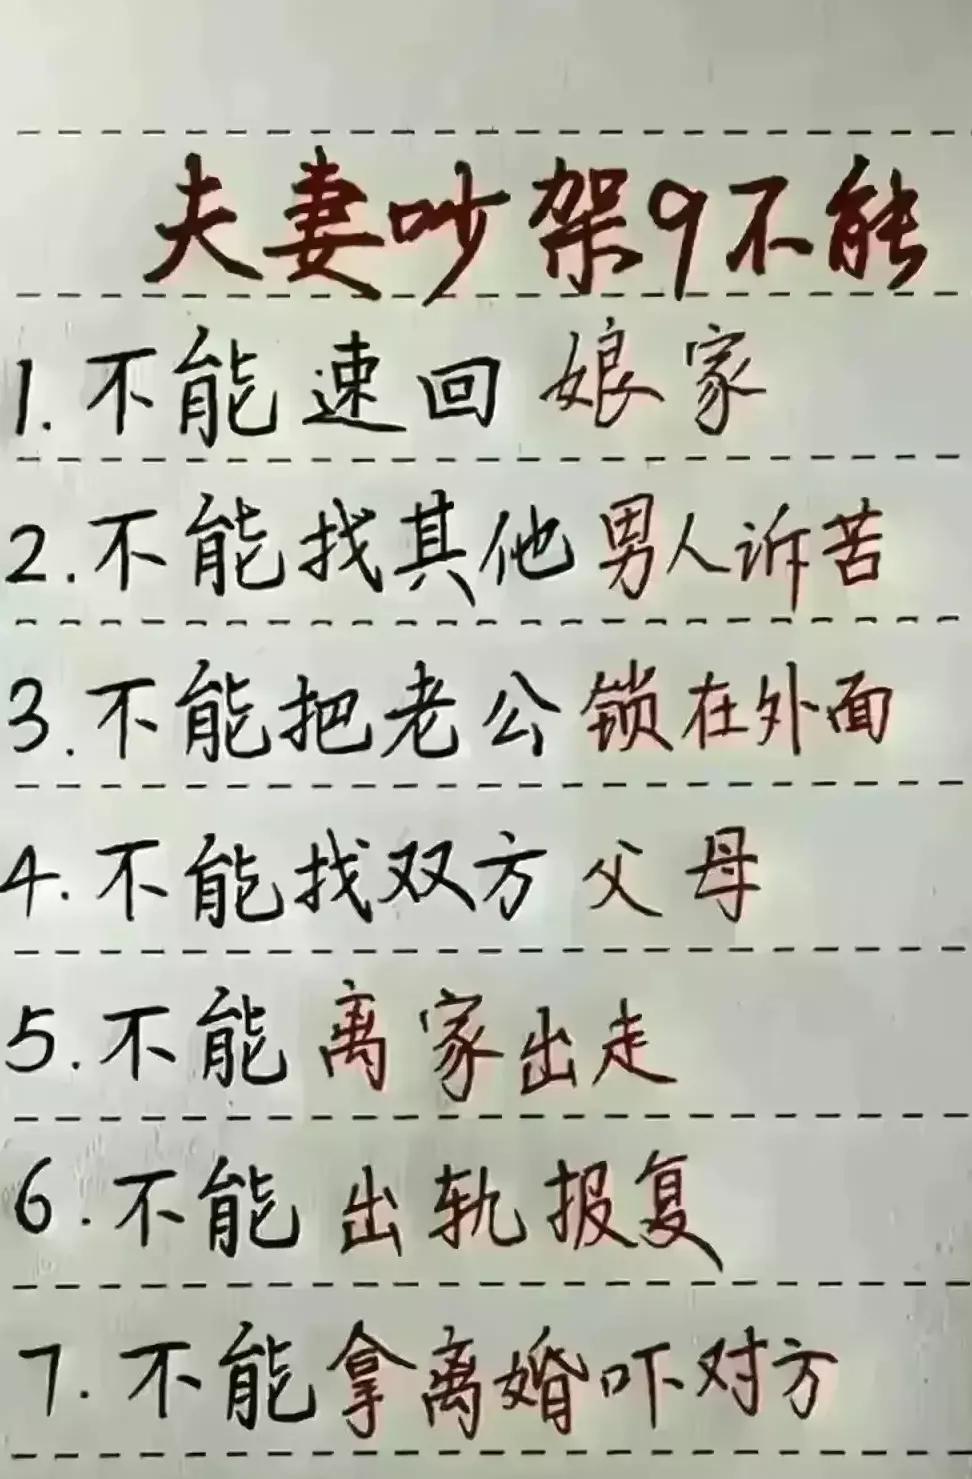 夫妻吵架9不能
1.不能速回娘家
2.不能找其他男人诉苦
3.不能把老公锁在外面
4.不能找双方父母
5.不能离家出走
6.不能出轨报复
7.不能拿离婚吓对方